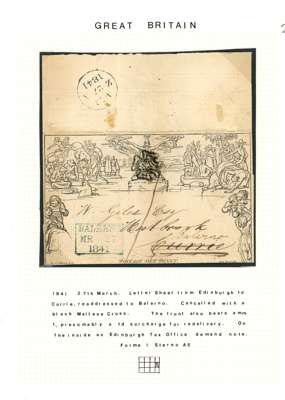 GREAT BRITAIN
2
1841
W. Giles Esq
BALERNO
MR
1841
Currie
POSTAGE ONE PENNY.
1841 27th March. Letter Sheet from Edinburgh to
Currie, readdressed to Balerno. Cancelled with a
black Maltese Cross. The front also bears a ms
1, presumably a 1d surcharge for redelivery. On
the inside an Edinburgh Tax Office demand note.
Forme 1 Stereo A6